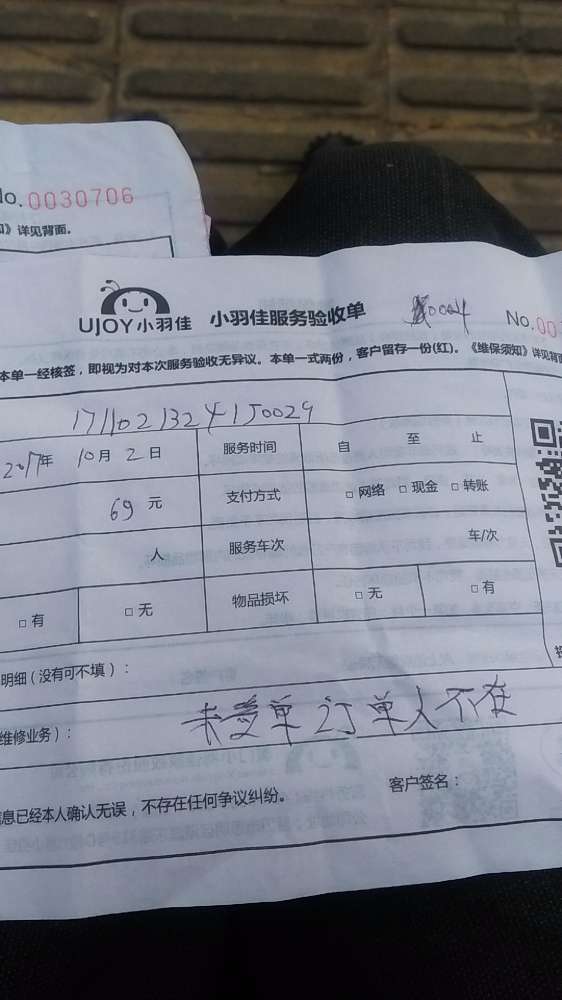 No.0030706
》详见背面。
UJOY小羽佳 小羽佳服务验收单 No.003
本单一经核签，即视为对本次服务验收无异议。本单一式两份，客户留存一份(红)。《维保须知》详见背面
2017年 10月 2日 服务时间 自 至 止
69 元 支付方式 □ 网络 □ 现金 □ 转账
人 服务车次 车/次
□ 有 □ 无 物品损坏 □ 无 □ 有
明细（没有可不填）：
维修业务）： 未签单 订单人不在
息已经本人确认无误，不存在任何争议纠纷。 客户签名：